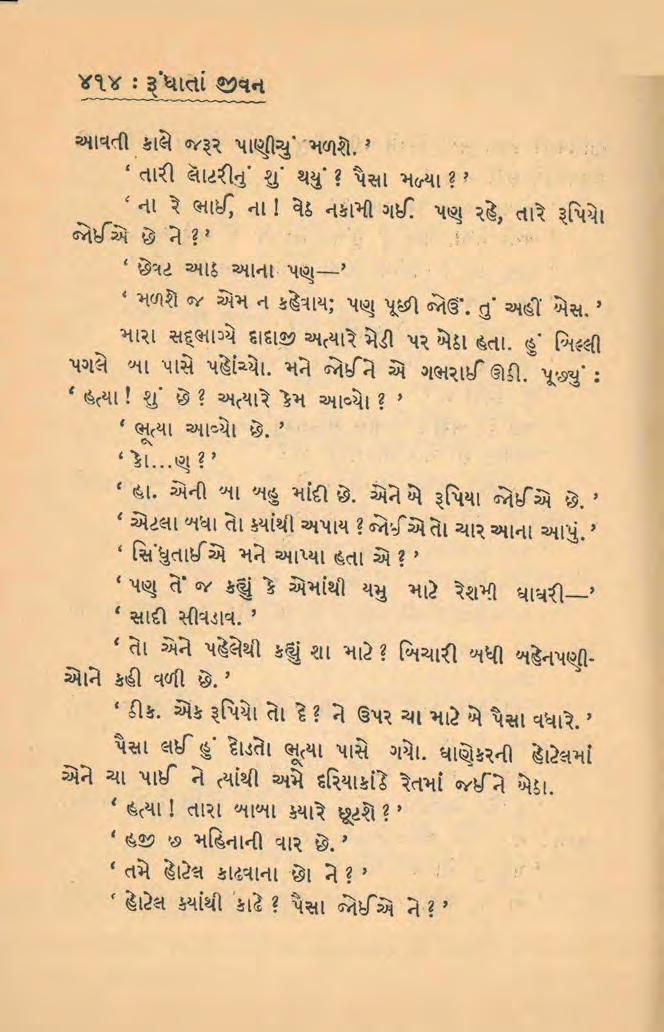 ૪૧૪ : રૂંધાતાં જીવન
આવતી કાલે જરૂર પાણીચું મળશે.’
‘ તારી લૅાટરીનું શું થયું ? પૈસા મળ્યા ? ’
‘ ના રે ભાઈ, ના ! વેઠ નકામી ગઈ. પણ રહે, તારે રૂપિયો
જોઈએ છે ને ? ’
‘ છેવટ આઠ આના પણ—’
‘ મળશે જ એમ ન કહેવાય; પણ પૂછી જોઉં. તું અહીં બેસ. ’
મારા સદ્ભાગ્યે દાદાજી અત્યારે મેડી પર બેઠા હતા. હું બિલ્લી
પગલે બા પાસે પહોંચ્યો. મને જોઈને એ ગભરાઈ ઊઠી. પૂછ્યું :
‘ હત્યા ! શું છે ? અત્યારે કેમ આવ્યો ? ’
‘ ભૂત્યા આવ્યો છે. ’
‘ કો...ણ ? ’
‘ હા. એની બા બહુ માંદી છે. એને બે રૂપિયા જોઈએ છે. ’
‘ એટલા બધા તો ક્યાંથી અપાય ? જોઈએ તો ચાર આના આપું. ’
‘ સિંધુતાઈએ મને આપ્યા હતા એ ? ’
‘ પણ તેં જ કહ્યું કે એમાંથી યમુ માટે રેશમી ઘાઘરી—’
‘ સાદી સીવડાવ. ’
‘ તો એને પહેલેથી કહ્યું શા માટે ? બિચારી બધી બહેનપણી-
ઓને કહી વળી છે. ’
‘ ઠીક. એક રૂપિયો તો દે ? ને ઉપર ચા માટે બે પૈસા વધારે. ’
પૈસા લઈ હું દોડતો ભૂત્યા પાસે ગયો. ધાણેકરની હોટેલમાં
એને ચા પાઈ ને ત્યાંથી અમે દરિયાકાંઠે રેતમાં જઈને બેઠા.
‘ હત્યા ! તારા બાબા ક્યારે છૂટશે ? ’
‘ હજી છ મહિનાની વાર છે. ’
‘ તમે હોટેલ કાઢવાના છો ને ? ’
‘ હોટેલ ક્યાંથી કાઢે ? પૈસા જોઈએ ને ? ’